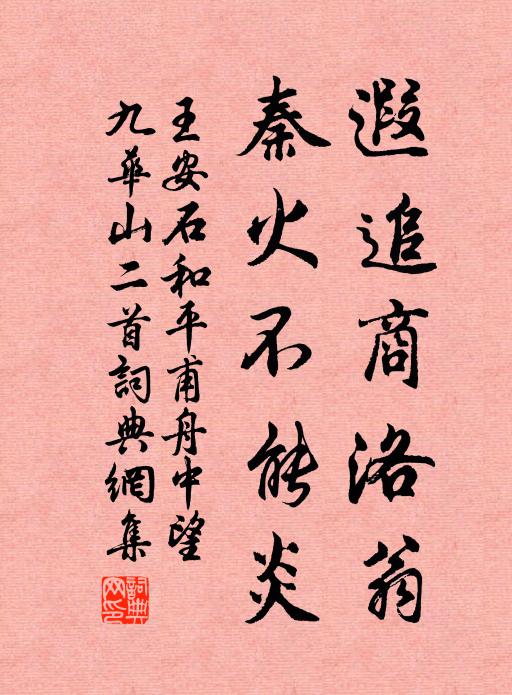 遐追商洛翁
秦火不能炎
王安石和平甫舟中望
九華山二首詞典網集
詞典
网印